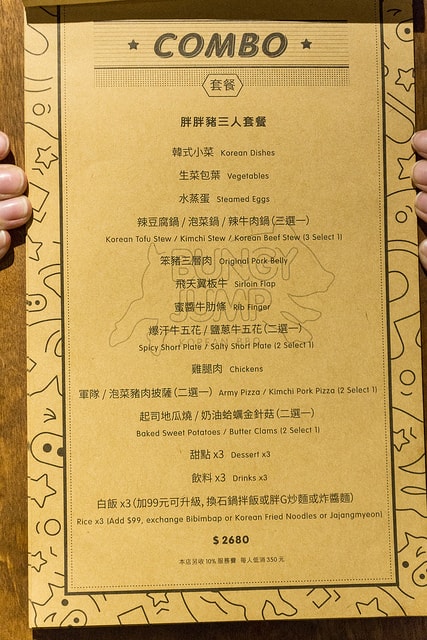 COMBO
套餐
胖胖豬三人套餐
韓式小菜 Korean Dishes
生菜包葉 Vegetables
水蒸蛋 Steamed Eggs
辣豆腐鍋 / 泡菜鍋 / 辣牛肉鍋 (三選一)
Korean Tofu Stew / Kimchi Stew / Korean Beef Stew (3 Select 1)
笨豬三層肉 Original Pork Belly
飛天翼板牛 Sirloin Flap
蜜醬牛肋條 Rib Finger
爆汗牛五花 / 鹽蔥牛五花 (二選一)
Spicy Short Plate / Salty Short Plate (2 Select 1)
雞腿肉 Chickens
軍隊 / 泡菜豬肉披薩 (二選一) Army Pizza / Kimchi Pork Pizza (2 Select 1)
起司地瓜燒 / 奶油蛤蠣金針菇 (二選一)
Baked Sweet Potatoes / Butter Clams (2 Select 1)
甜點 x3 Dessert x3
飲料 x3 Drinks x3
白飯 x3 (加99元可升級, 換石鍋拌飯或胖G炒麵或炸醬麵)
Rice x3 (Add $99, exchange Bibimbap or Korean Fried Noodles or Jajangmyeon)
$ 2680
本店另收 10% 服務費 每人低消 350 元
BUNGY
JUMP
KOREAN BBQ